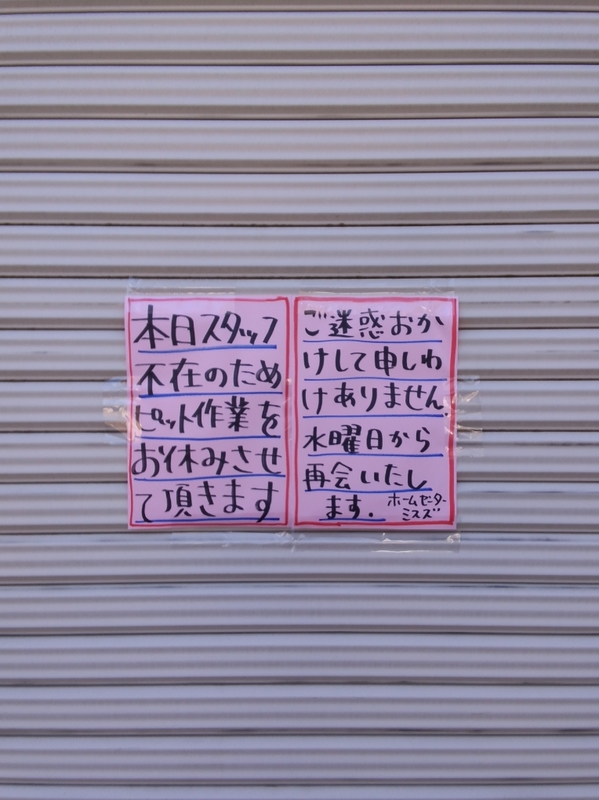 本日スタッフ
不在のため
ピット作業を
お休みさせ
て頂きます
ご迷惑おか
けして申しわ
けありません.
水曜日から
再会いたし
ます.
ホームセンター
ミスズ